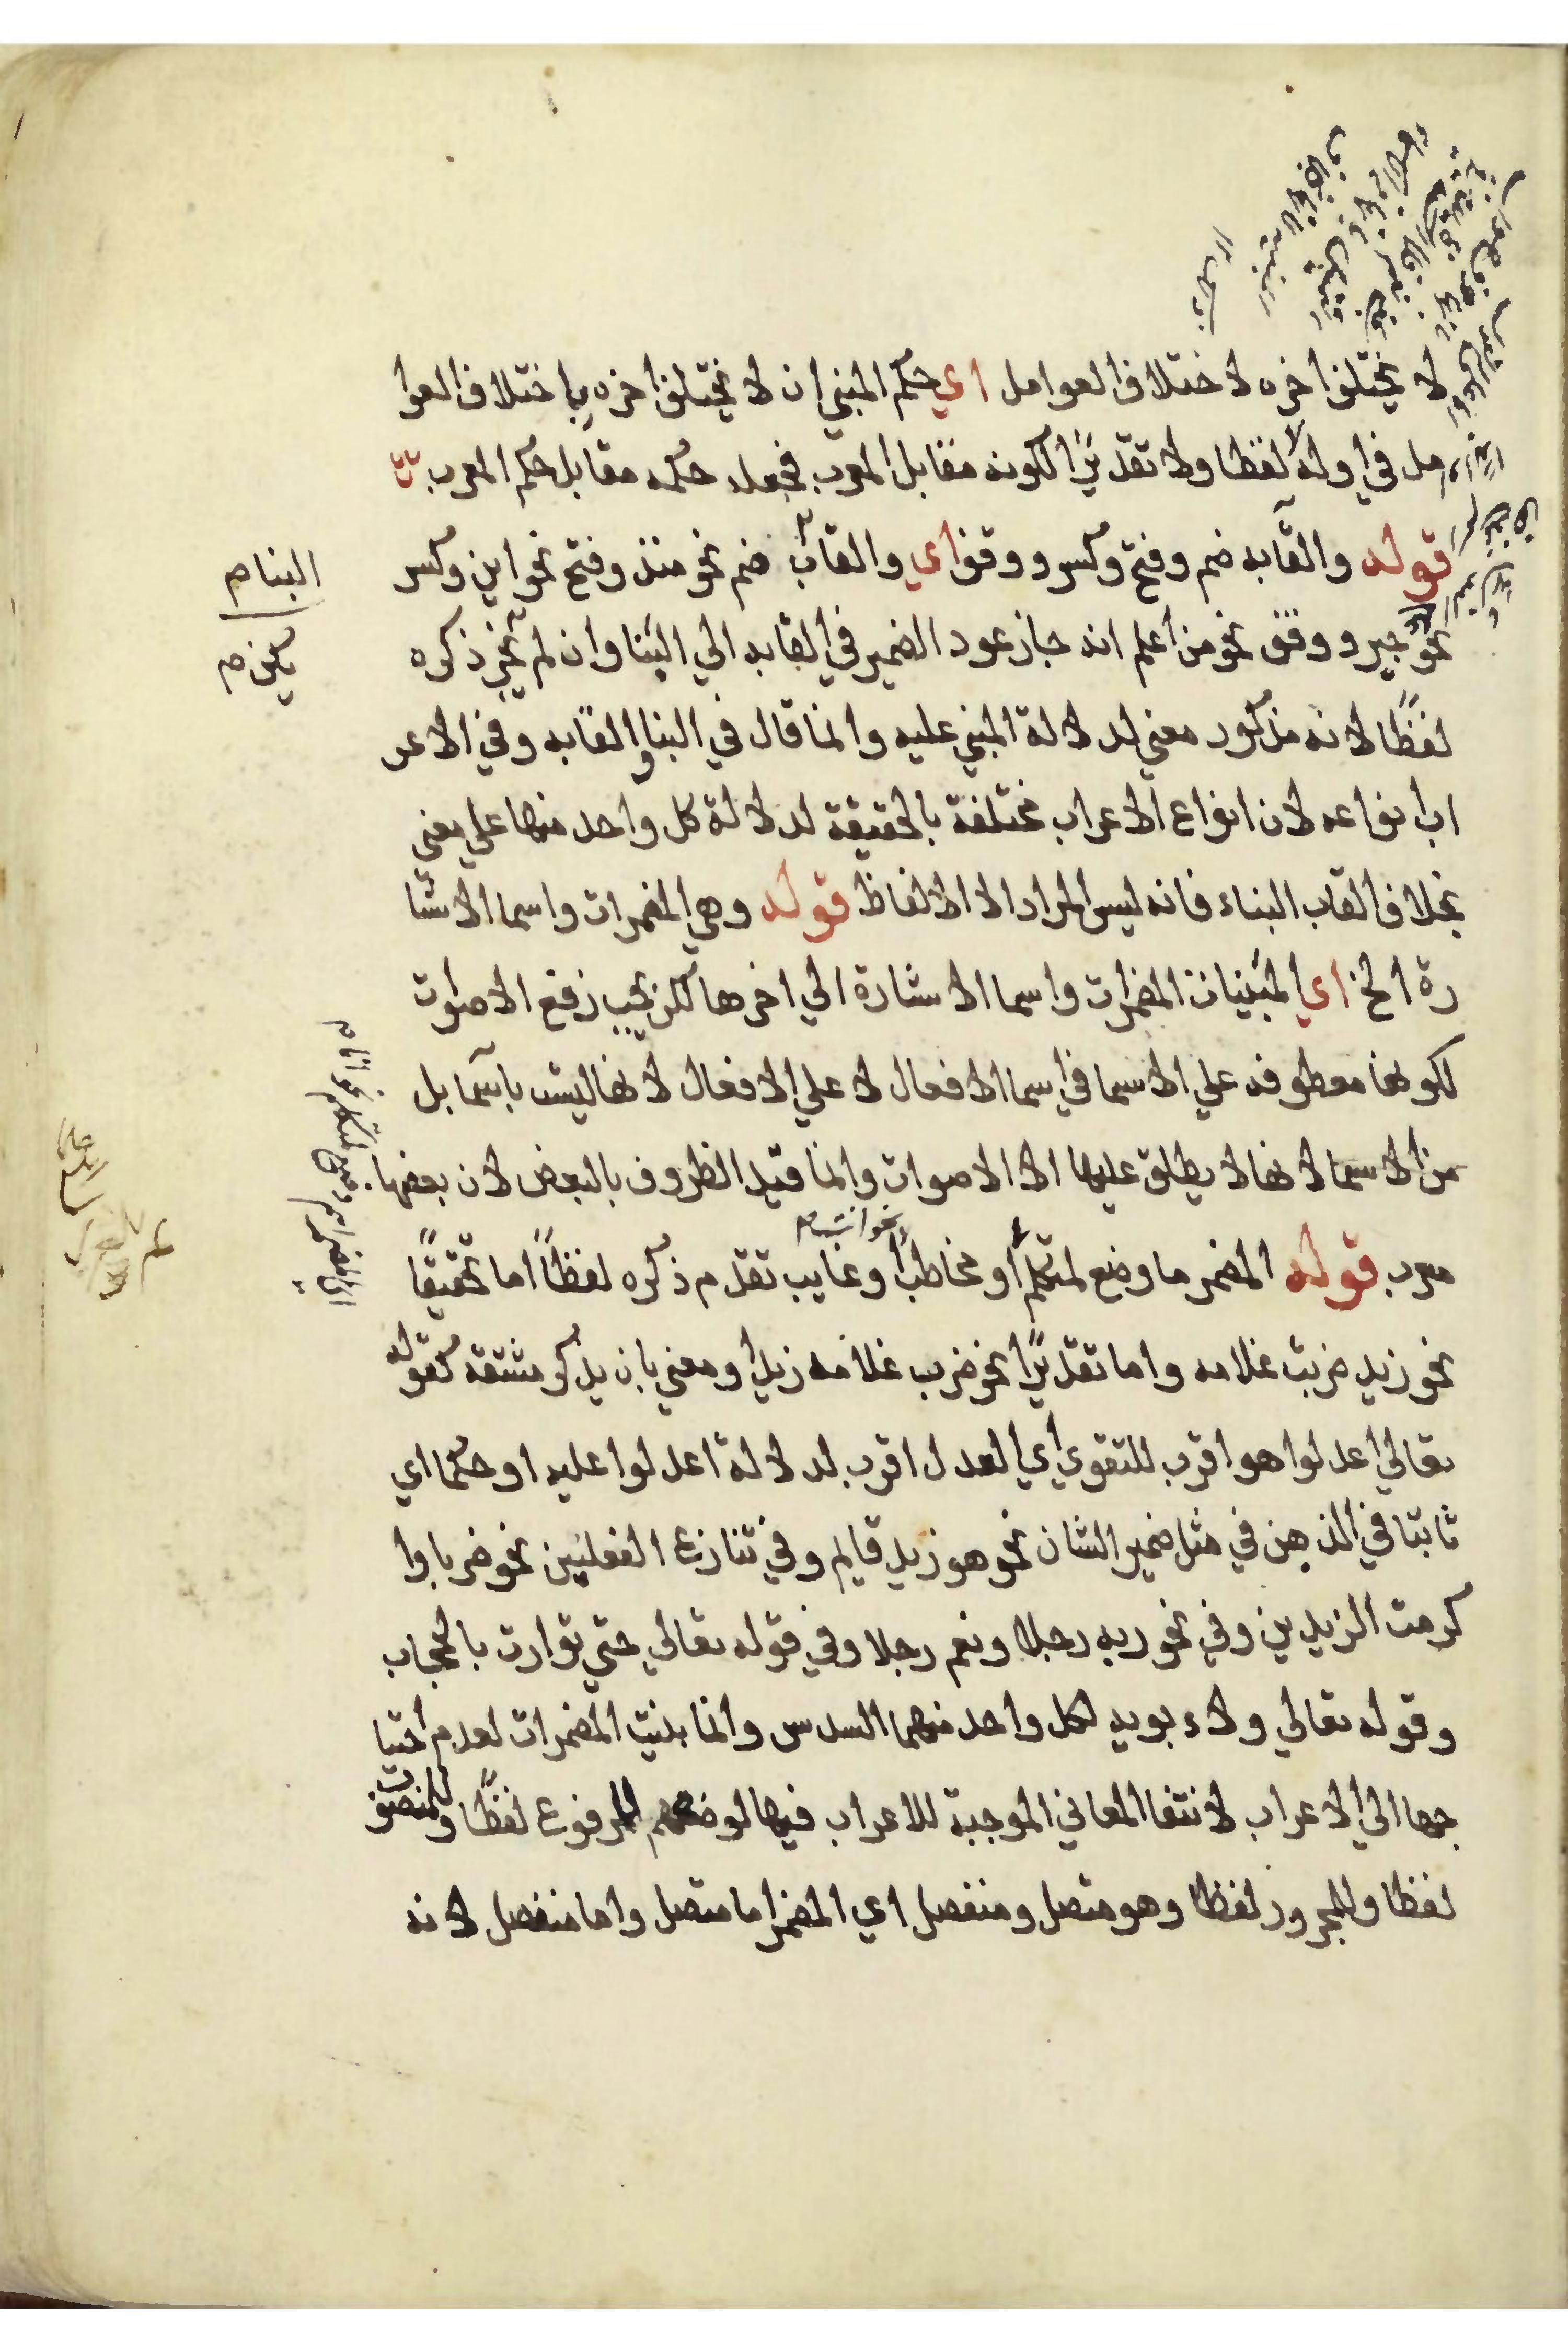 لا يختلف اخره لاختلاف العوامل اي حكم المبني ان لا يختلف اخره باختلاف العوا
مل في اوله لا لفظا ولا تقديرًا لكونه مقابل المعرب فجعل حكمه مقابل حكم المعرب
قوله والقابه ضم وفتح وكسر ووقف اي والقاب ضم نحو منذ وفتح نحو اين وكسر
نحو جير ووقف نحو من اعلم انه جاز عود الضمير في القابه الي البنا وان لم يجر ذكره
لفظًا لانه مذكور معني لدلالة المبني عليه وانما قال في البنا والقابه وفي الاعر
اب انواعه لان انواع الاعراب مختلفة بالحقيقة لدلالة كل واحد منها علي معني
بخلاف القاب البناء فانه ليس المراد الا الالفاظ قوله وهي المضمرات واسما الاشا
رة الخ اي المبنيات المضمرات واسما الاشارة الي اخرها لكن يجب رفع الاصوات
لكونها معطوفه علي الاسما في اسما الافعال لا علي الافعال لانها ليست باسما بل
من الاسما لانها لا يطلق عليها الا الاصوات وانما قيد الظروف بالبعض لان بعضها
معرب قوله المضمر ما وضع لمتكلم او مخاطب او غايب تقدم ذكره لفظًا اما تحقيقًا
نحو زيد ضربت غلامه واما تقديرًا نحو ضرب غلامه زيد او معني بان يذكر مشتقه كقوله
تعالي اعدلوا هو اقرب للتقوي اي العدل اقرب لدلالة اعدلوا عليه او حكما اي
ثابتا في الذهن في مثل ضمير الشان نحو هو زيد قايم وفي تنازع الفعلين نحو ضربا وا
كرمت الزيدين وفي نحو ربه رجلا ونعم رجلا وفي قوله تعالي حتي توارت بالحجاب
وقوله تعالي ولابويه لكل واحد منهما السدس وانما بنيت المضمرات لعدم احتيا
جها الي الاعراب لانتفا المعاني الموجبة للاعراب فيها لوضعهم للمرفوع لفظًا وللمنصوب
لفظا وللمجرور لفظا وهو متصل ومنفصل اي المضمر اما متصل واما منفصل لانه
البنا م